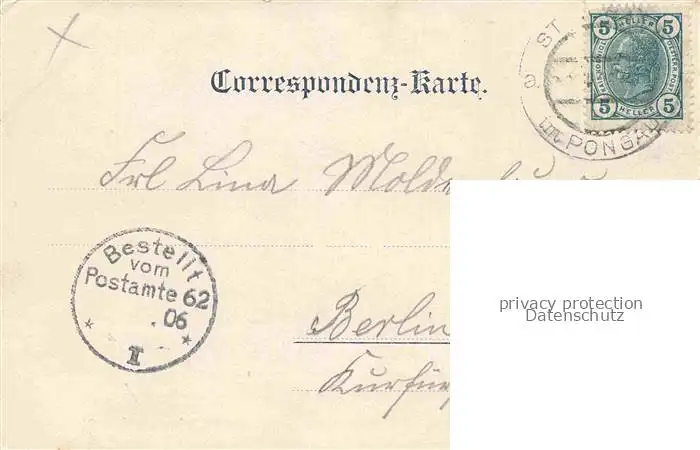 ST
5 HELLER 5
5 HELLER 5
Correspondenz-Karte.
im PONGAU
Frl Lina
Bestellt
vom
Postamte 62
. 06
* I *
privacy protection
Datenschutz
Berlin